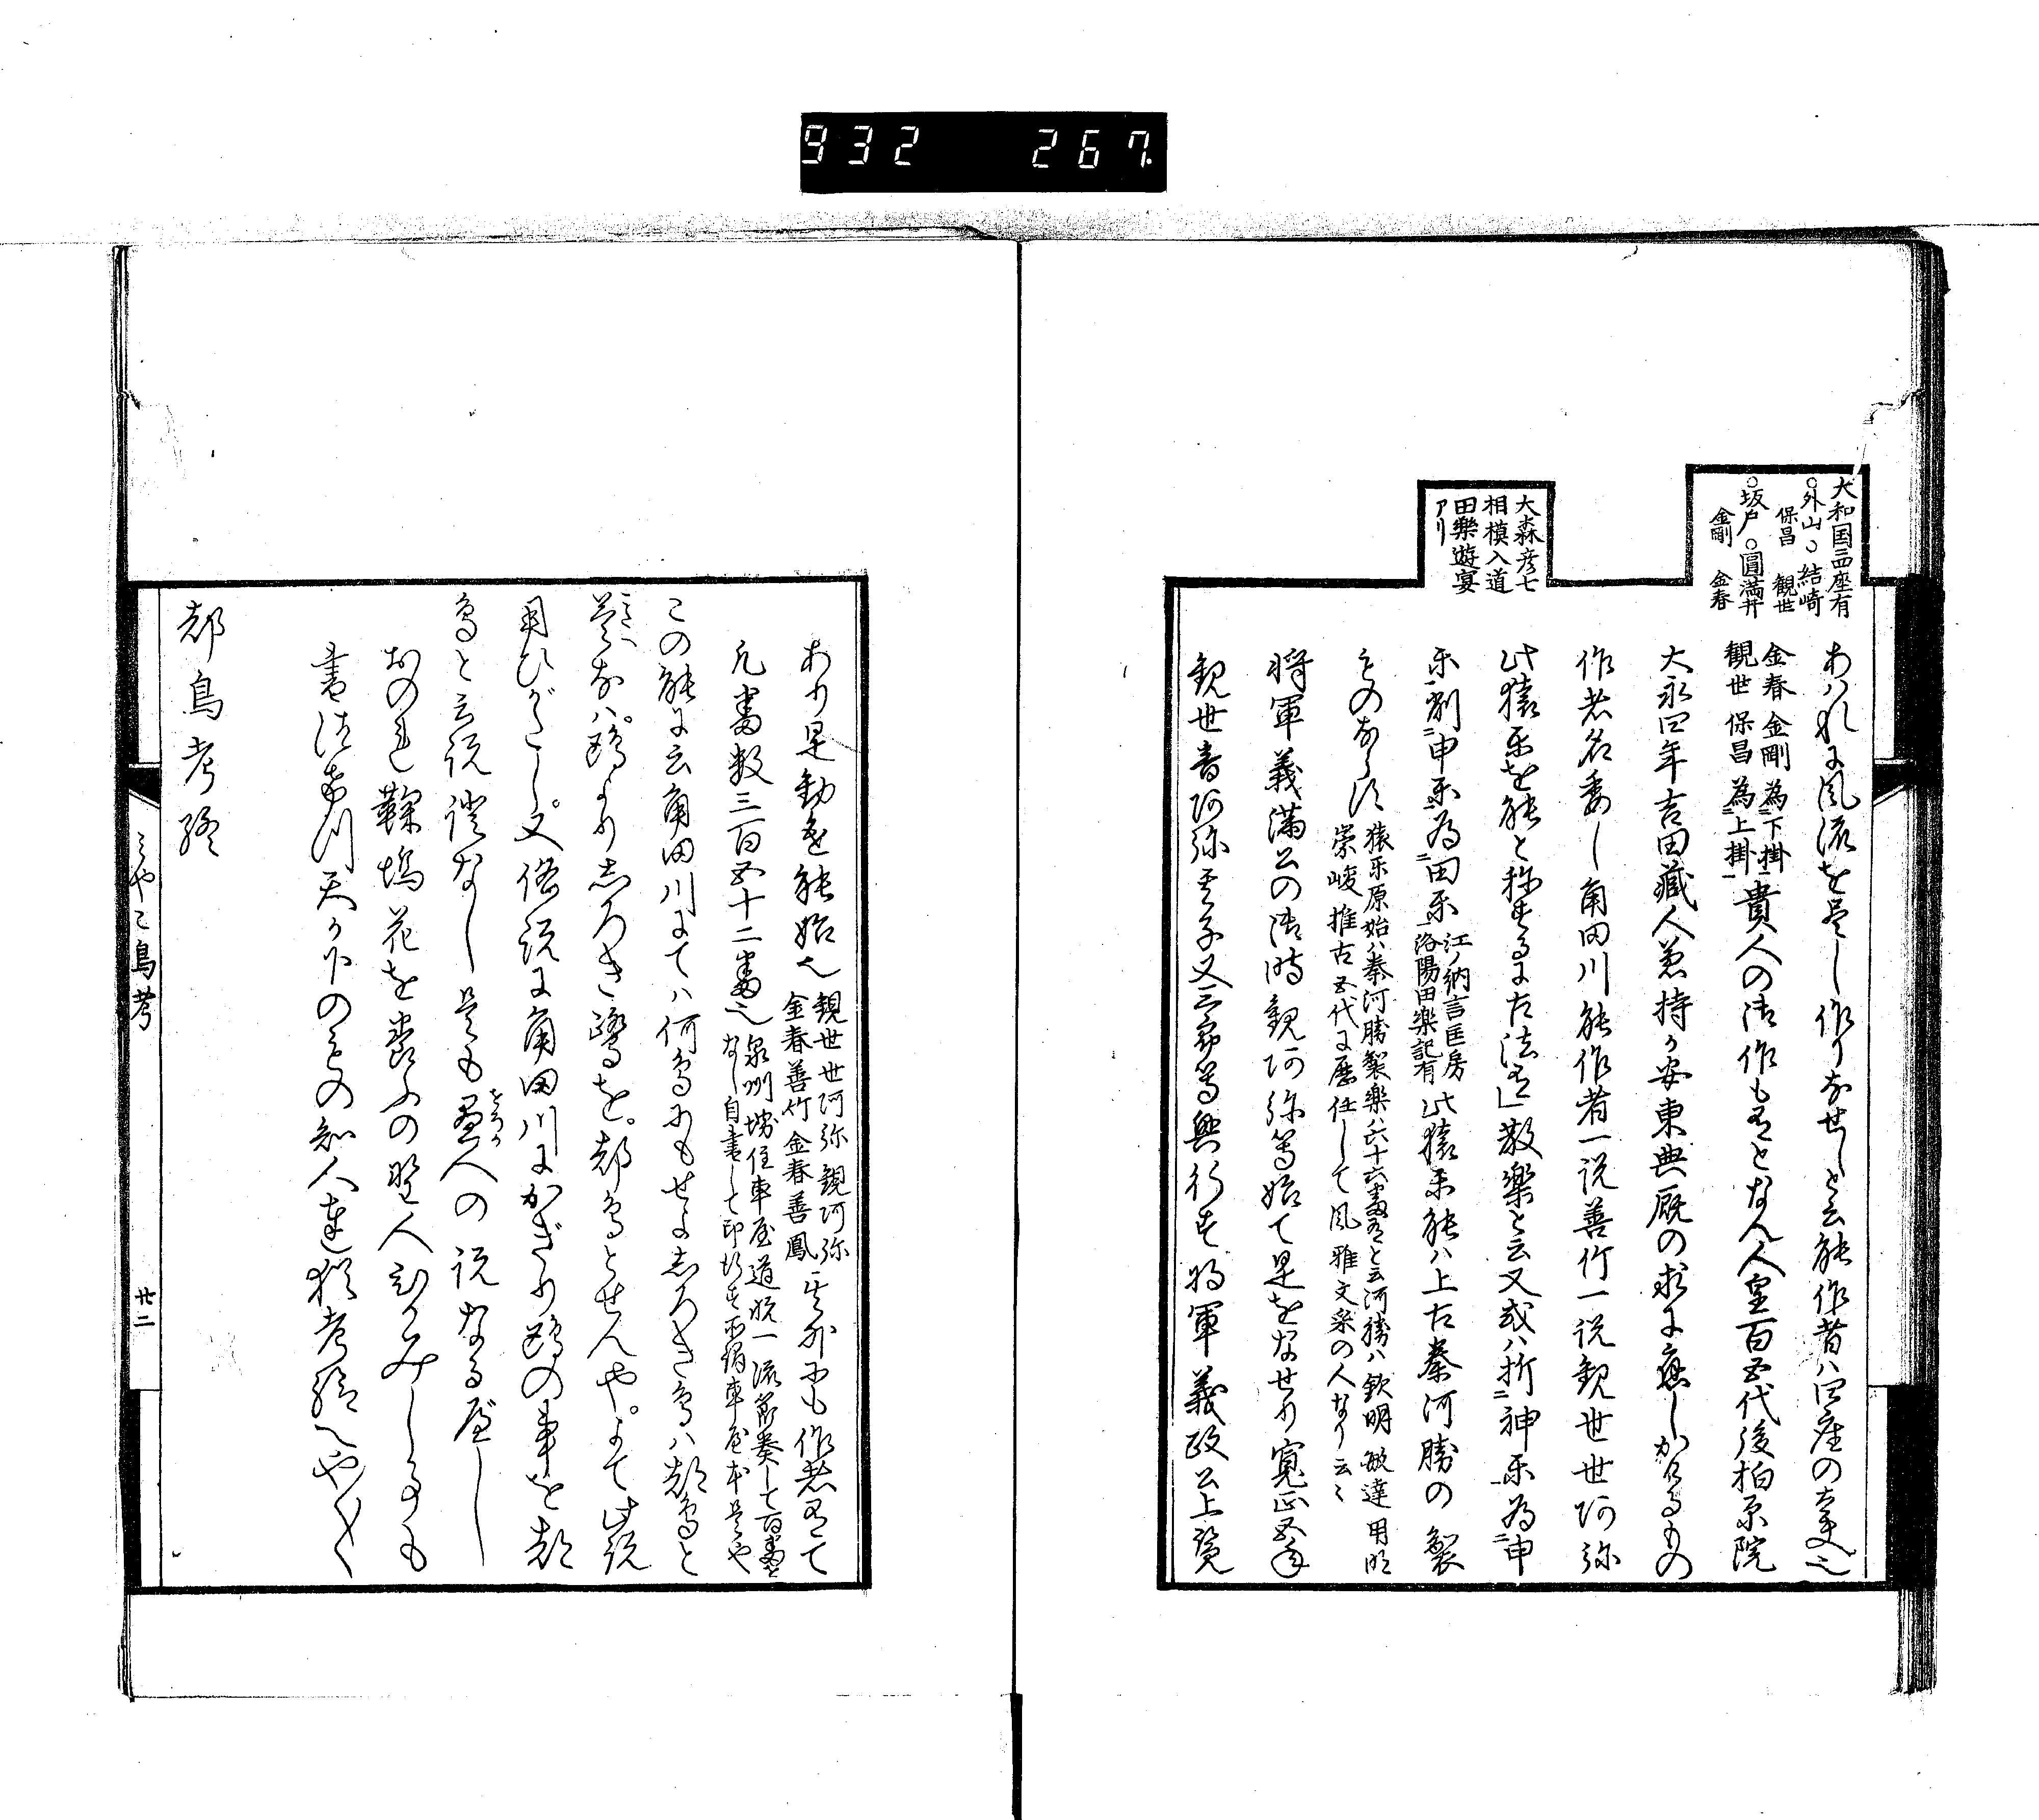 932 267
大和国四座有
○外山 ○結崎
保昌 観世
○坂戸 ○圓満井
金剛 金春
あはれに風流を尽し作りなせしと云能作者ハ四座の太夫也
金春 金剛 為下掛
観世 保昌 為上掛
貴人の御作も有となん人皇百五代後柏原院
大永四年吉田蔵人兼持が安東典厩の求に応しかけるもの
作者名委し角田川能作者一説善竹一説観世世阿弥
此猿楽を能と称するに古法有散楽と云又或ハ折神楽為申
大森彦七
相模入道
田樂遊宴
アリ
楽割申楽為田楽
江ノ納言匡房
洛陽田楽記有
此猿楽能ハ上古秦河勝の製
ものならす
猿楽原始ハ秦河勝製楽ハ六十六番有と云河勝ハ欽明 敏達 用明
崇峻 推古五代に歴仕して風雅文采の人なり云々
将軍義満公の御時観阿弥等始て是をなせり寛正五年
観世音阿弥其子又三郎等興行す将軍義政公上覧
あり是勧進能始也
観世世阿弥 観阿弥
金春善竹 金春善鳳
其外にも作者有て
凡番数三百五十二番也
泉州堺住車屋道晩一流節奏して百番を
なし自書して印行す所謂車屋本是や
この能に云角田川にてハ何鳥にもせよしろき鳥ハ都鳥と
答なハ。鴎よりしろき鷺を。都鳥とせんや。よて此説
用ひがたし。又俗説に角田川にかぎり鴎の事を都
鳥と云説證なし是も愚人の説なるべし
おのれ鞠塢花を養ふの野人ひがみしるも
書法赤川天か下のもの知人達猶考給へや〱
都鳥考終
みやこ鳥考
廿二